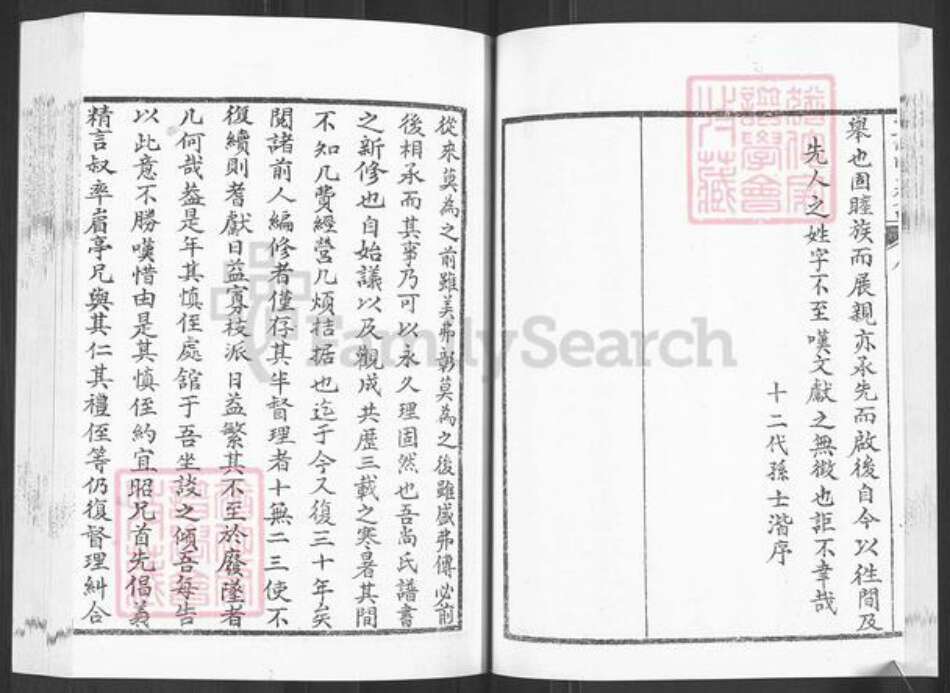 舉也固睦族而展親亦承先而啟後自今以徃間及
先人之姓字不至嘆文獻之無徵也詎不幸哉
十二代孫士湝序
從來莫為之前雖美弗彰莫為之後雖盛弗傳必前
後相承而其事乃可以永久理固然也吾尚氏譜書
之新修也自始議以及觀成共歷三載之寒暑其間
不知几費經營几煩拮据也迄于今又復三十年矣
閱諸前人編修者僅存其半督理者十無二三使不
復續則耆獻日益寡枝派日益繁其不至於廢墜者
几何哉葢是年其慎侄處舘于吾坐談之傾吾每告
以此意不勝嘆惜由是其慎侄約宜昭兄首先倡義
精言叔率眉亭兄與其仁其禮侄等仍復督理糾合
FamilySearch